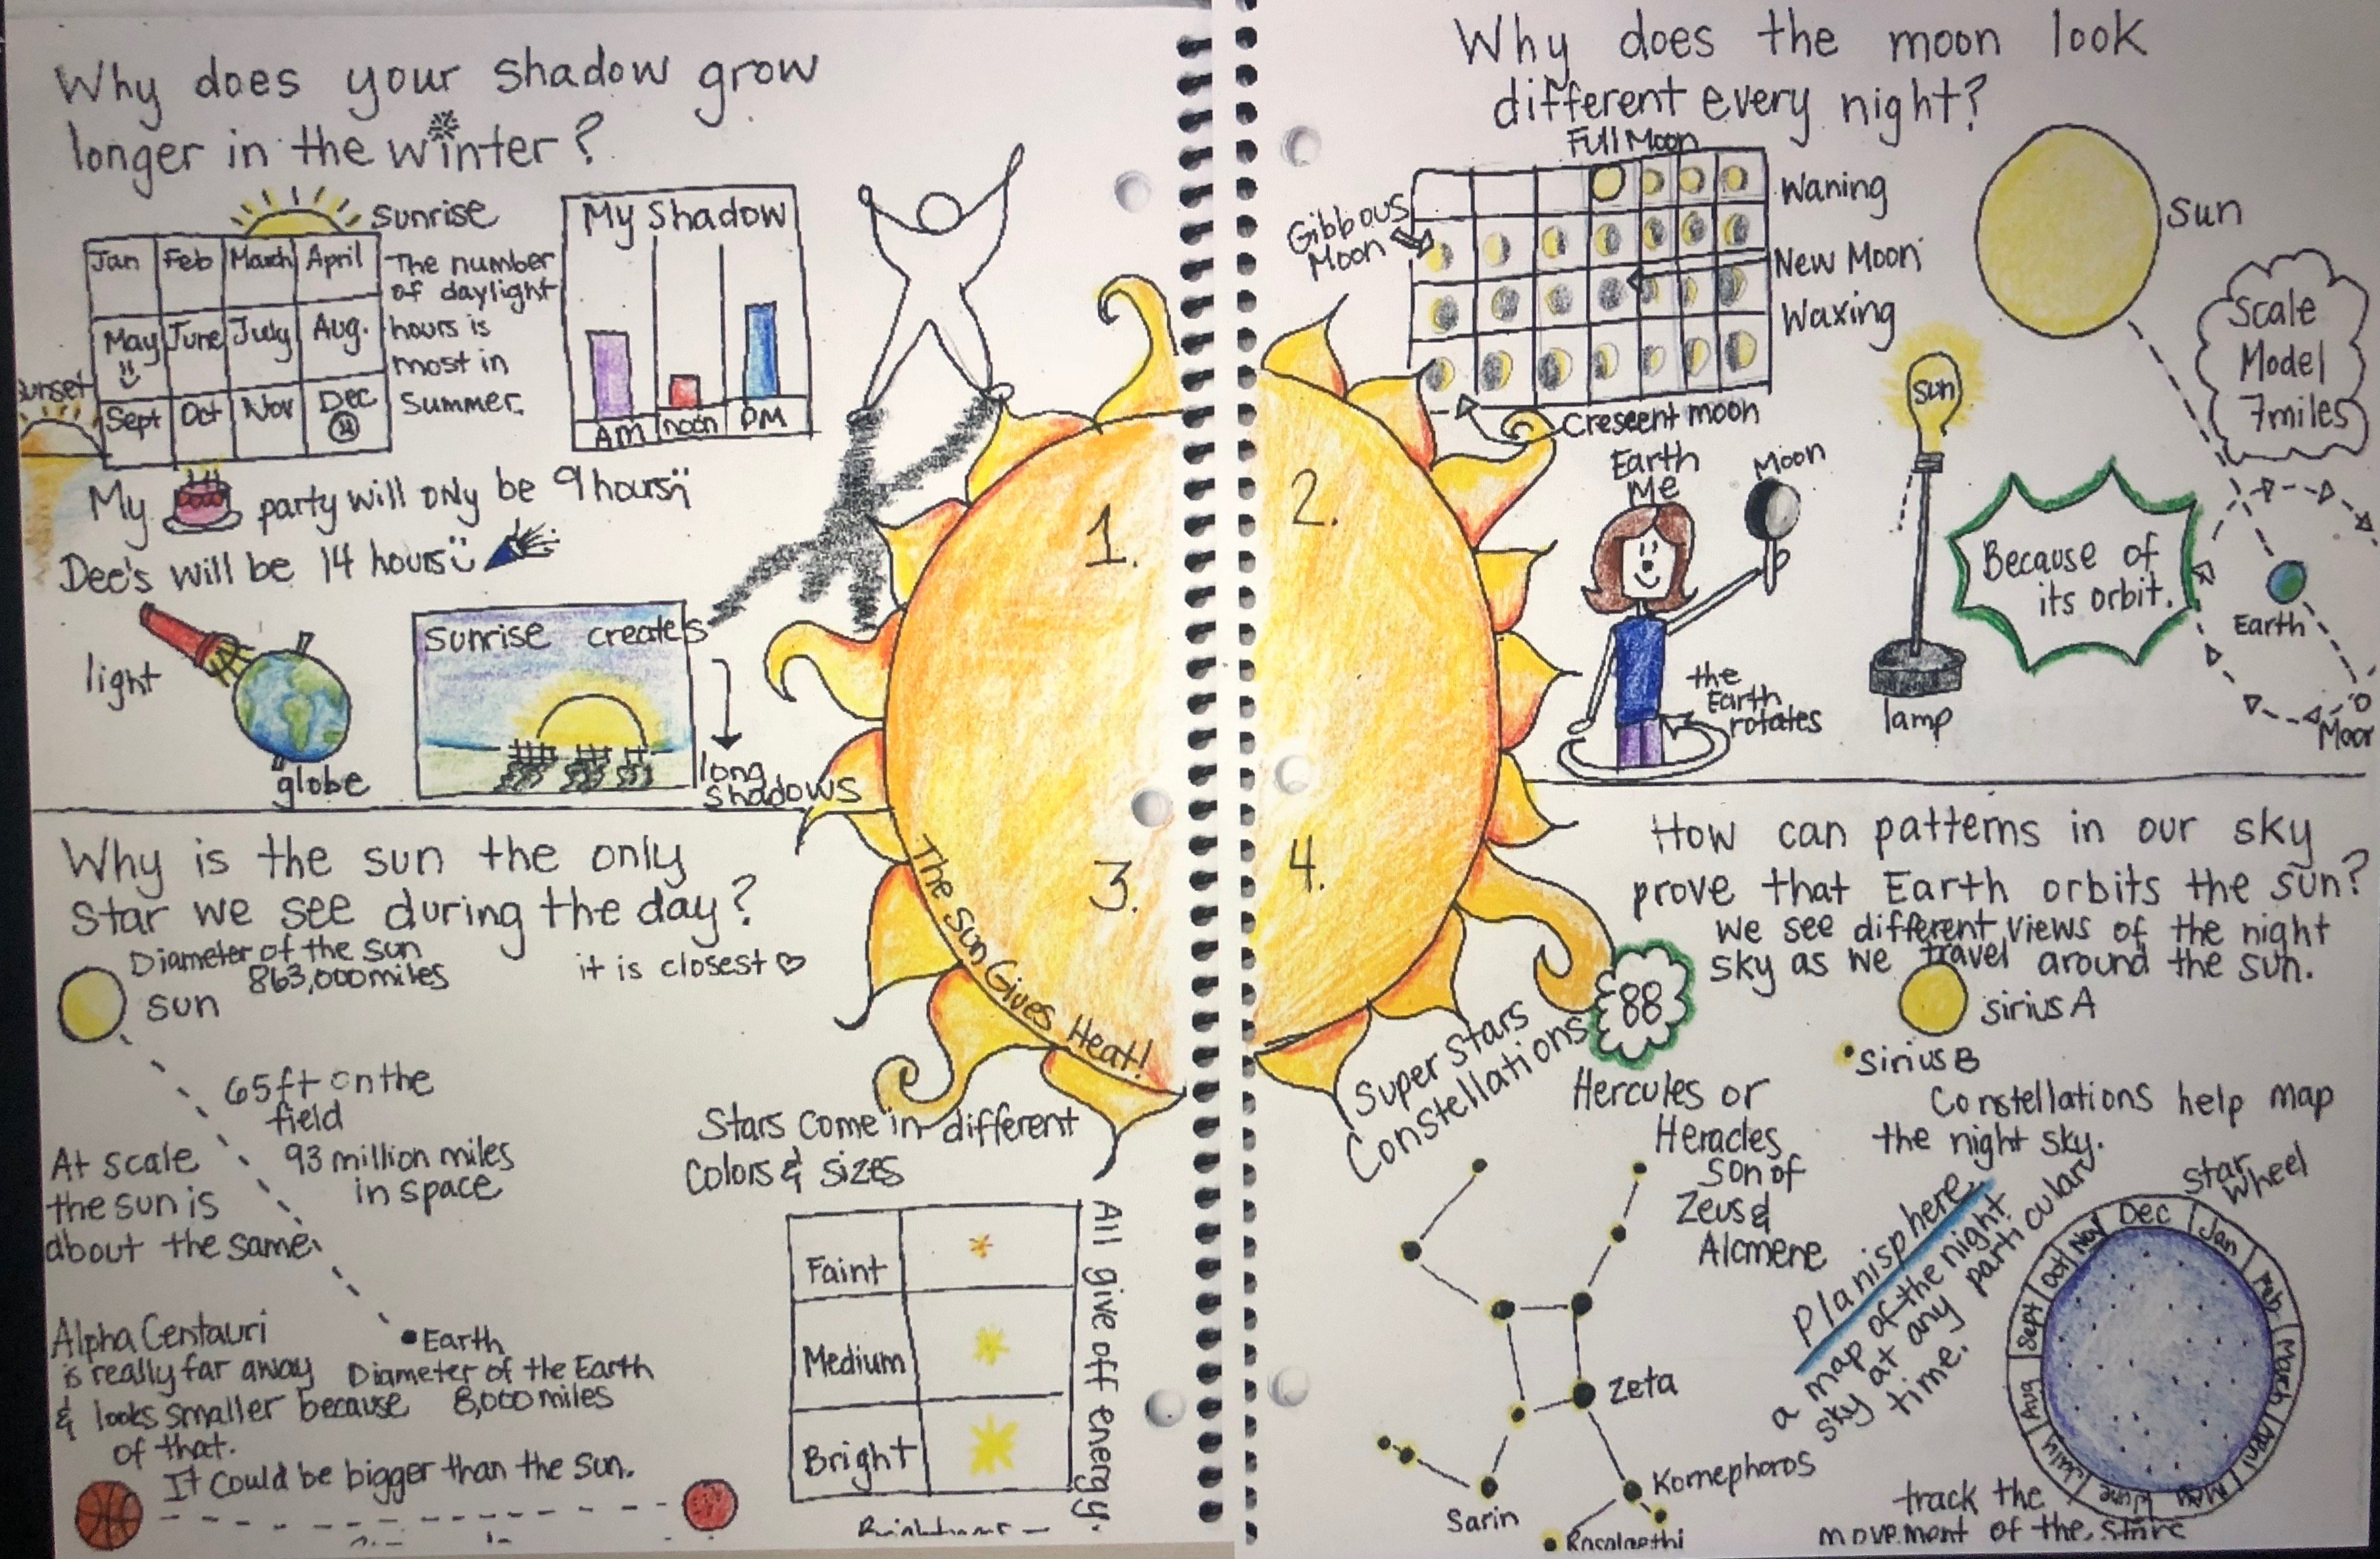 Why does your shadow grow
longer in the winter?
sunrise
Jan Feb March April
May June July Aug.
Sept Oct Nov Dec
sunset
The number
of daylight
hours is
most in
summer.
My Shadow
AM noon PM
My party will only be 9 hours
Dee's will be 14 hours
light
globe
Sunrise creates
long
shadows
1.
2.
3.
4.
The Sun Gives Heat!
Why does the moon look
different every night?
Full Moon
Gibbous
Moon
Waning
New Moon
Waxing
Crescent moon
sun
Scale
Model
7miles
Earth
Me
Moon
sun
the
Earth
rotates
lamp
Because of
its orbit.
Earth
Moon
Why is the sun the only
star we see during the day?
Diameter of the sun
863,000 miles
it is closest
sun
65ft on the
field
93 million miles
in space
At scale
the sun is
about the same
Alpha Centauri
is really far away
& looks smaller because
of that.
It could be bigger than the sun.
Earth
Diameter of the Earth
8,000 miles
Stars come in different
colors & sizes
Faint
Medium
Bright
All give off energy.
How can patterns in our sky
prove that Earth orbits the sun?
we see different views of the night
sky as we travel around the sun.
Sirius A
Sirius B
88
Super Stars
Constellations
Hercules or
Heracles
son of
Zeus &
Alcmene
Constellations help map
the night sky.
Zeta
Kornephoros
Sarin
Planisphere
a map of the night
sky at any particular
time.
Star
Wheel
Dec Jan Feb March April May June July Aug Sept Oct Nov
track the
movement of the stars